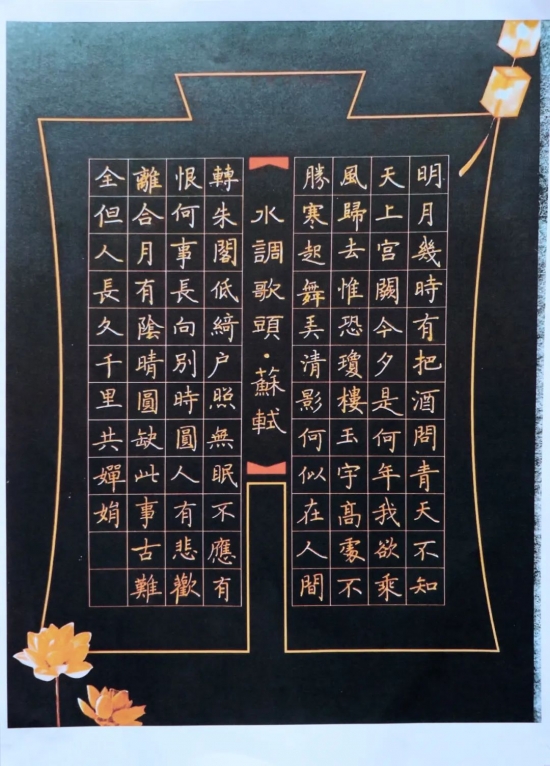 明月幾時有把酒問青天不知
天上宮闕今夕是何年我欲乘
風歸去惟恐瓊樓玉宇高處不
勝寒起舞弄清影何似在人間
水調歌頭·蘇軾
轉朱閣低綺户照無眠不應有
恨何事長向別時圓人有悲歡
離合月有陰晴圓缺此事古難
全但人長久千里共嬋娟